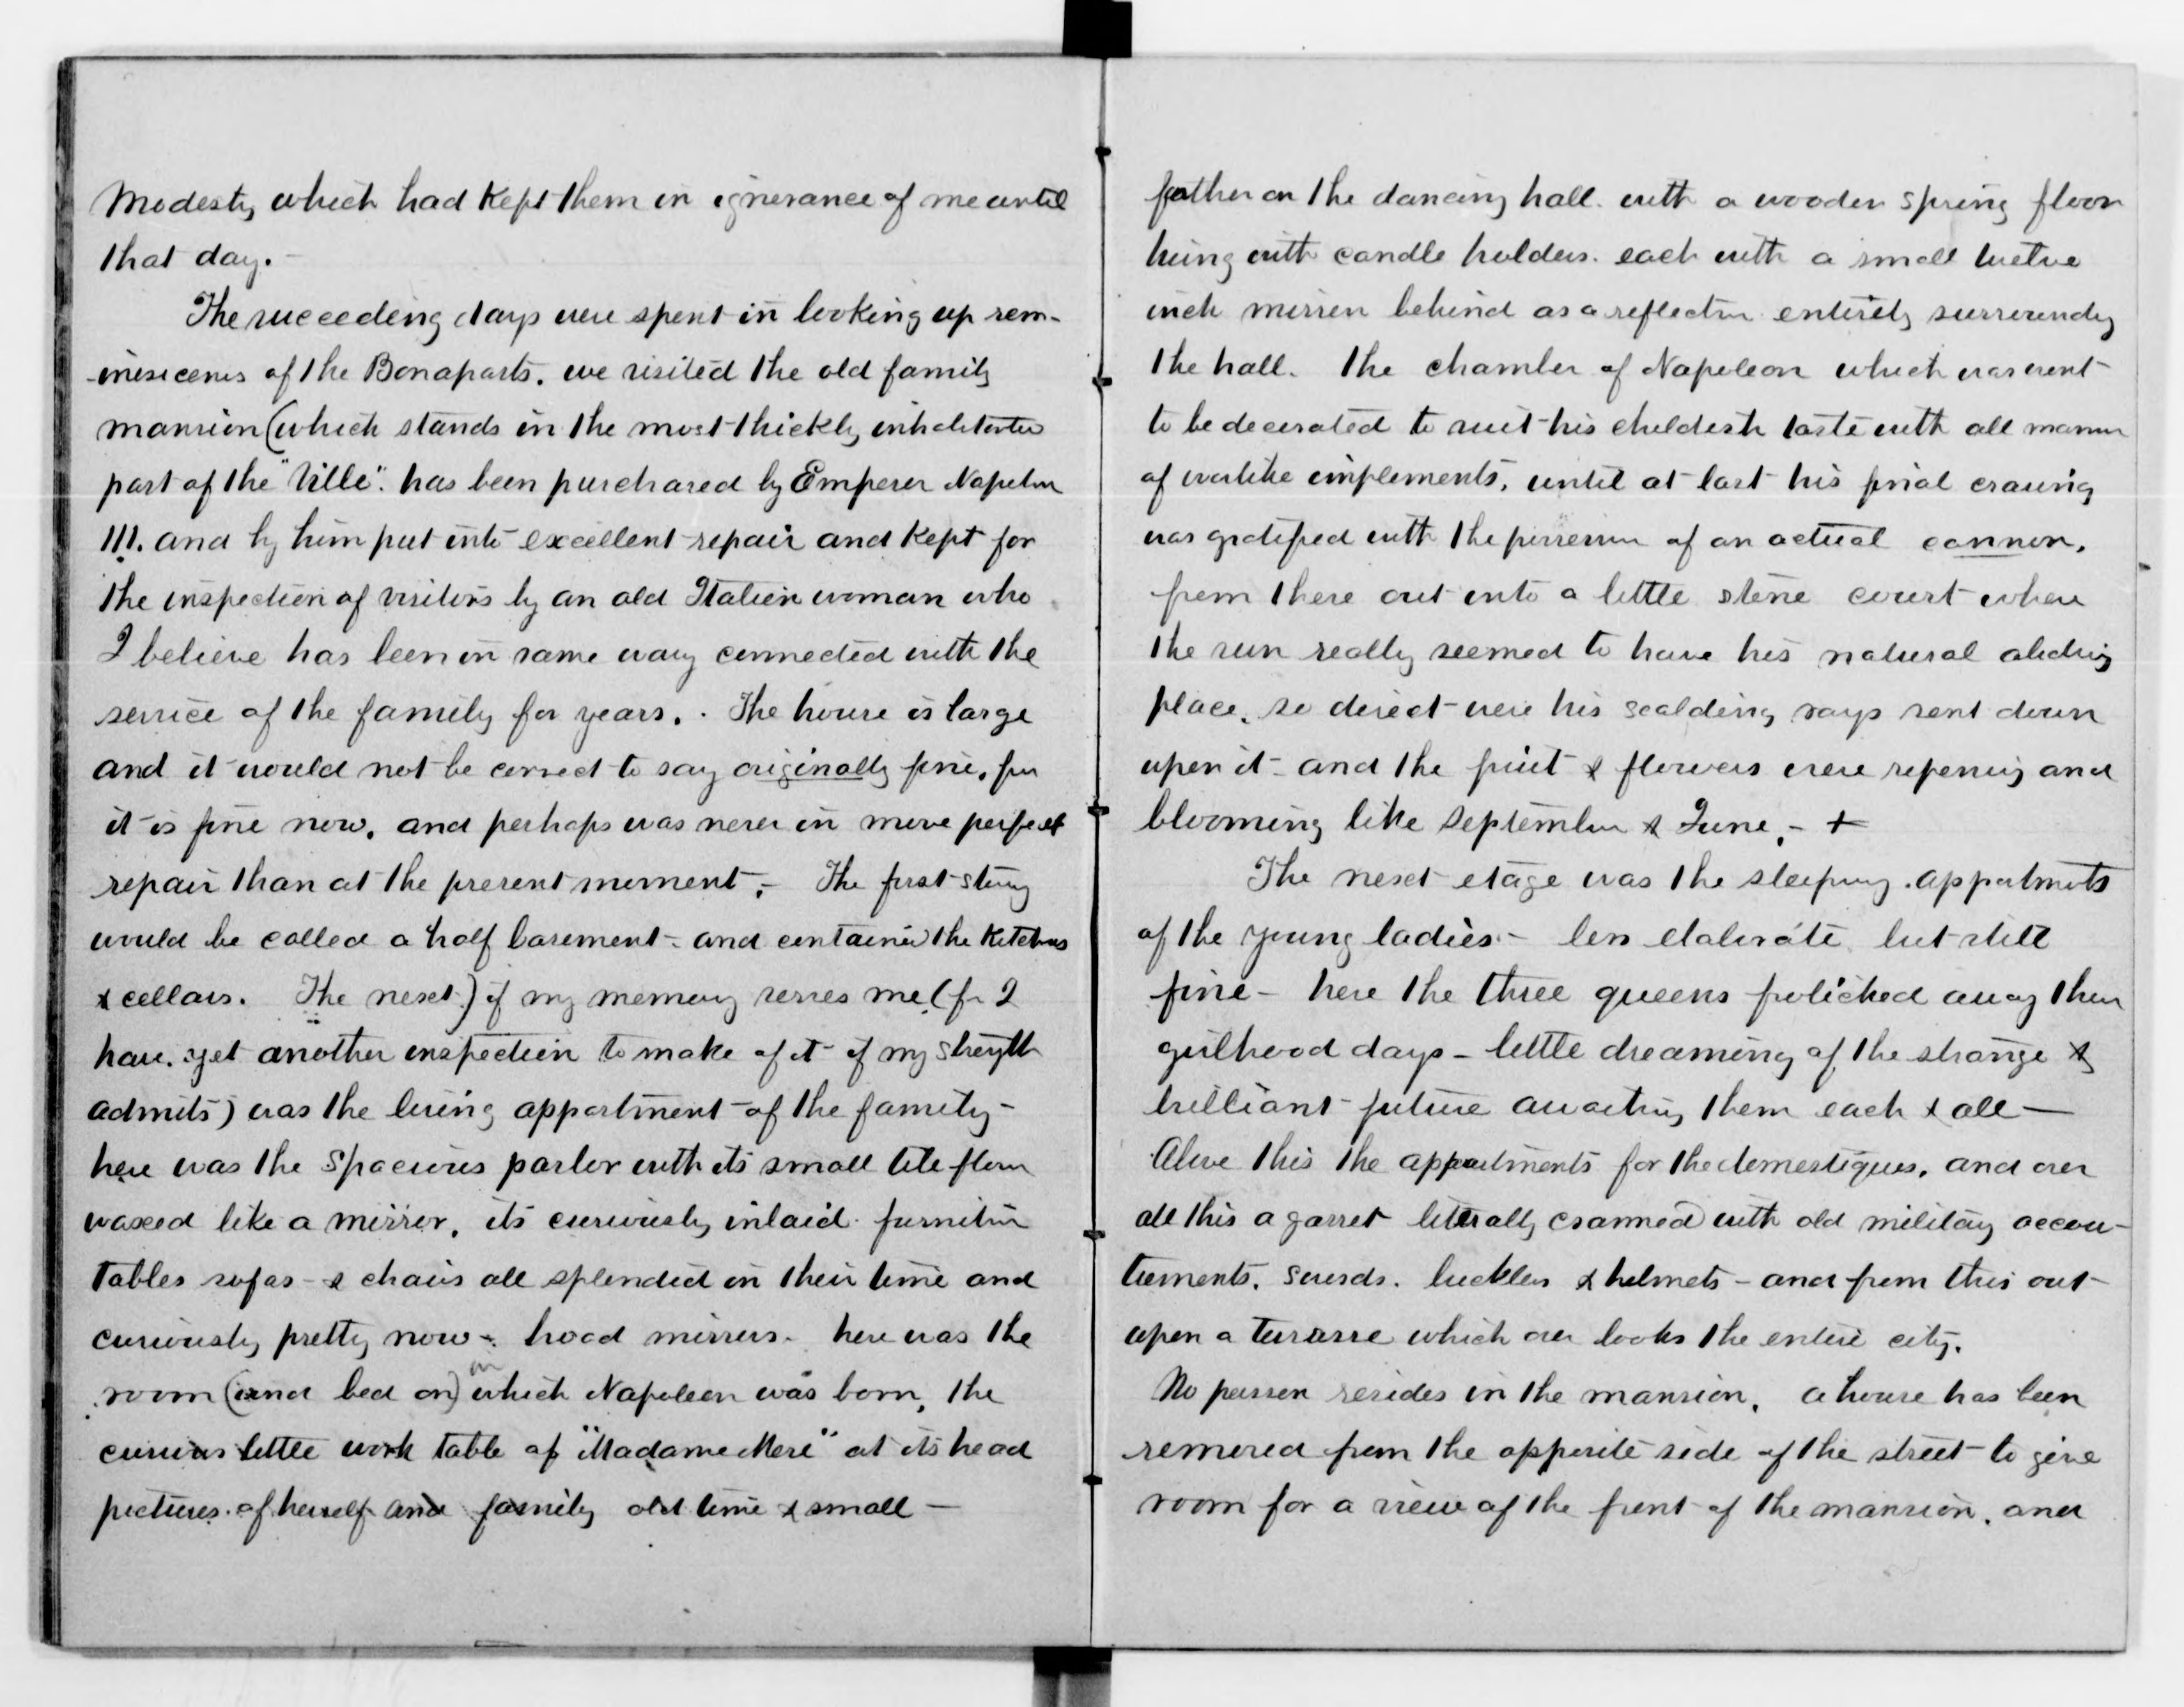 Modesty which had kept them in ignorance of me until
that day. -
The succeeding days were spent in looking up rem-
-inescenes of the Bonaparts. we visited the old family
mansion (which stands in the most thickly inhabitated
part of the "Ville". has been purchased by Emperor Napoleon
III. and by him put into excellent repair and kept for
the inspection of visitors by an old Italien woman who
I believe has been in some way connected with the
service of the family for years. . The house is large
and it would not be correct to say originally fine, for
it is fine now, and perhaps was never in more perfect
repair than at the present moment. - The first story
would be called a half basement - and contained the kitchens
& cellars. The next) if my memory serves me (for I
have yet another inspection to make of it if my strength
admits) was the living appartment of the family -
here was the spacious parlor with its small tile floor
waxed like a mirror, its curiously inlaid furniture
tables sofas - & chairs all splended in their time and
curiously pretty now - broad mirrors - here was the
room (and bed on) on which Napoleon was born, the
curious little work table of "Madame Mere" at its head
pictures of herself and family old time & small -
father on the dancing hall. with a wooden spring floor
hung with candle holders. each with a small twelve
inch mirror behind as a reflector entirely surrounding
the hall. The chamber of Napoleon which was wont
to be decorated to suit his childish taste with all manner
of warlike implements, until at last his final craving
was gratified with the possession of an actual cannon.
from there out into a little stone court where
the sun really seemed to have his natural abiding
place, so direct were his scalding rays sent down
upon it - and the fruit & flowers were ripening and
blooming like September & June. - +
The next etage was the sleeping appartments
of the young ladies - less elaborate but still
fine - here the three queens frolicked away their
girlhood days - little dreaming of the strange &
brilliant future awaiting them each & all -
Above this the appartments for the domestiques, and over
all this a garret literally crammed with old military accou-
trements, swords. bucklers & helmets - and from this out
upon a terrasse which over looks the entire city.
No person resides in the mansion, a house has been
removed from the opposite side of the street to give
room for a view of the front of the mansion, and